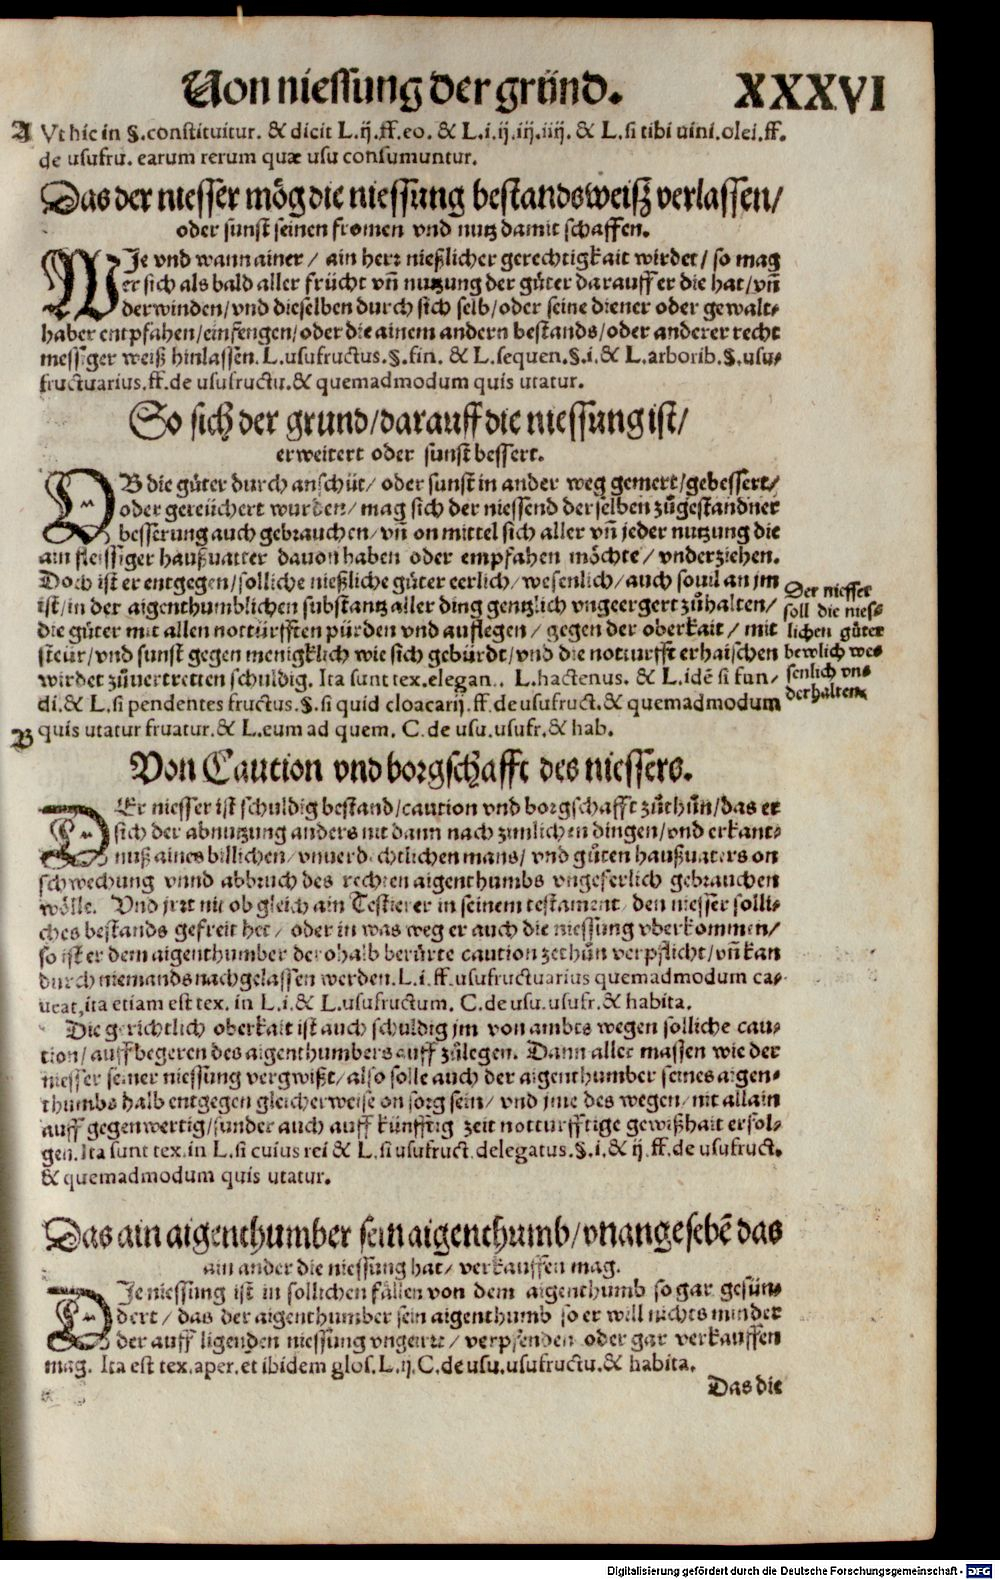 Von niessung der gründ. XXXVI
A Vt hic in §.constituitur. & dicit L.ij.ff.eo. & L.i.ij.iij.iiij. & L.si tibi uini.olei.ff.
de usufru. earum rerum quæ usu consumuntur.
Das der niesser mög die niessung bestandsweiß verlassen/
oder sunst seinen fromen vnd nutz damit schaffen.
WJe vnd wann ainer / ain herr nießlicher gerechtigkait wirdet / so mag
er sich als bald aller frücht vñ nutzung der güter darauff er die hat/vñ
derwinden/vnd dieselben durch sich selb/oder seine diener oder gewalt-
haber entpfahen/einfengen/oder die ainem andern bestands/oder anderer recht
messiger weiß hinlassen. L.usufructus.§.fin. & L.sequen.§.i.& L.arborib.§.usu-
fructuarius.ff.de usufructu.& quemadmodum quis utatur.
So sich der grund/darauff die niessung ist/
erweitert oder sunst bessert.
OB die güter durch anschüt/ oder sunst in ander weg gemert/gebessert/
oder gereüchert wurden/ mag sich der niessend derselben zügestandner
besserung auch gebrauchen/ vñ on mittel sich aller vñ jeder nutzung die
ain fleissiger haußuatter dauon haben oder empfahen möchte/ vnderziehen.
Doch ist er entgegen/solliche nießliche güter eerlich/wesenlich/auch souil an jm
ist/in der aigenthumblichen substantz aller ding gentzlich vngeergert zůhalten/
die güter mit allen notturfften pürden vnd auflegen / gegen der oberkait / mit
steür/vnd sunst gegen menigklich wie sich gebürdt/vnd die notturfft erhaischen
wirdet zůuertretten schuldig. Ita sunt tex.elegan.. L.hactenus. & L.idẽ si fun-
di.& L.si pendentes fructus.§.si quid cloacarij.ff.de usufruct.& quemadmodum
B quis utatur fruatur.& L.eum ad quem. C.de usu.usufr.& hab.
Der niesser
soll die nies-
lichen güter
bewlich we-
senlich vn-
derhalten.
Von Caution vnd borgschafft des niessers.
DEr niesser ist schuldig bestand/caution vnd borgschafft zůthůn/das er
sich der abnutzung anders nit dann nach zimlichen dingen/vnd erkant-
nuß aines billichen/vnuerdechtlichen mans/ vnd gůten haußuaters on
schwechung vnnd abbruch des rechten aigenthumbs vngeferlich gebrauchen
wölle. Vnd jrrt nit ob gleich ain Testierer in seinem testament/ den niesser solli-
ches bestands gefreit het/ oder in was weg er auch die niessung vberkommen/
so ist er dem aigenthumber derohalb berürte caution zethůn verpflicht/vñ kan
durch niemands nachgelassen werden.L.i.ff.usufructuarius quemadmodum ca-
ueat,ita etiam est tex. in L.i.& L.usufructum. C.de usu.usufr.& habita.
Die gerichtlich oberkait ist auch schuldig jm von ambts wegen solliche cau-
tion/auff begeren des aigenthumbers auff zůlegen. Dann aller massen wie der
niesser seiner niessung vergwißt/also solle auch der aigenthumber seines aigen-
thumbs halb entgegen gleicherweise on sorg sein/ vnd jme des wegen/nit allain
auff gegenwertig/sunder auch auff künfftig zeit notturfftige gewißhait erfol-
gen.Ita sunt tex.in L.si cuius rei & L.si usufruct.delegatus.§.i.& ij.ff.de usufruct.
& quemadmodum quis utatur.
Das ain aigenthumber sein aigenthumb/vnangesehẽ das
ain ander die niessung hat/ verkauffen mag.
DJe niessung ist in sollichen fällen von dem aigenthumb so gar gesün-
dert/ das der aigenthumber sein aigenthumb so er will nichts minder
der auff ligenden niessung vngeirrt/ verpfenden oder gar verkauffen
mag. Ita est tex.aper.et ibidem glos.L.ij.C.de usu.usufructu.& habita.
Das die
Digitalisierung gefördert durch die Deutsche Forschungsgemeinschaft - DFG